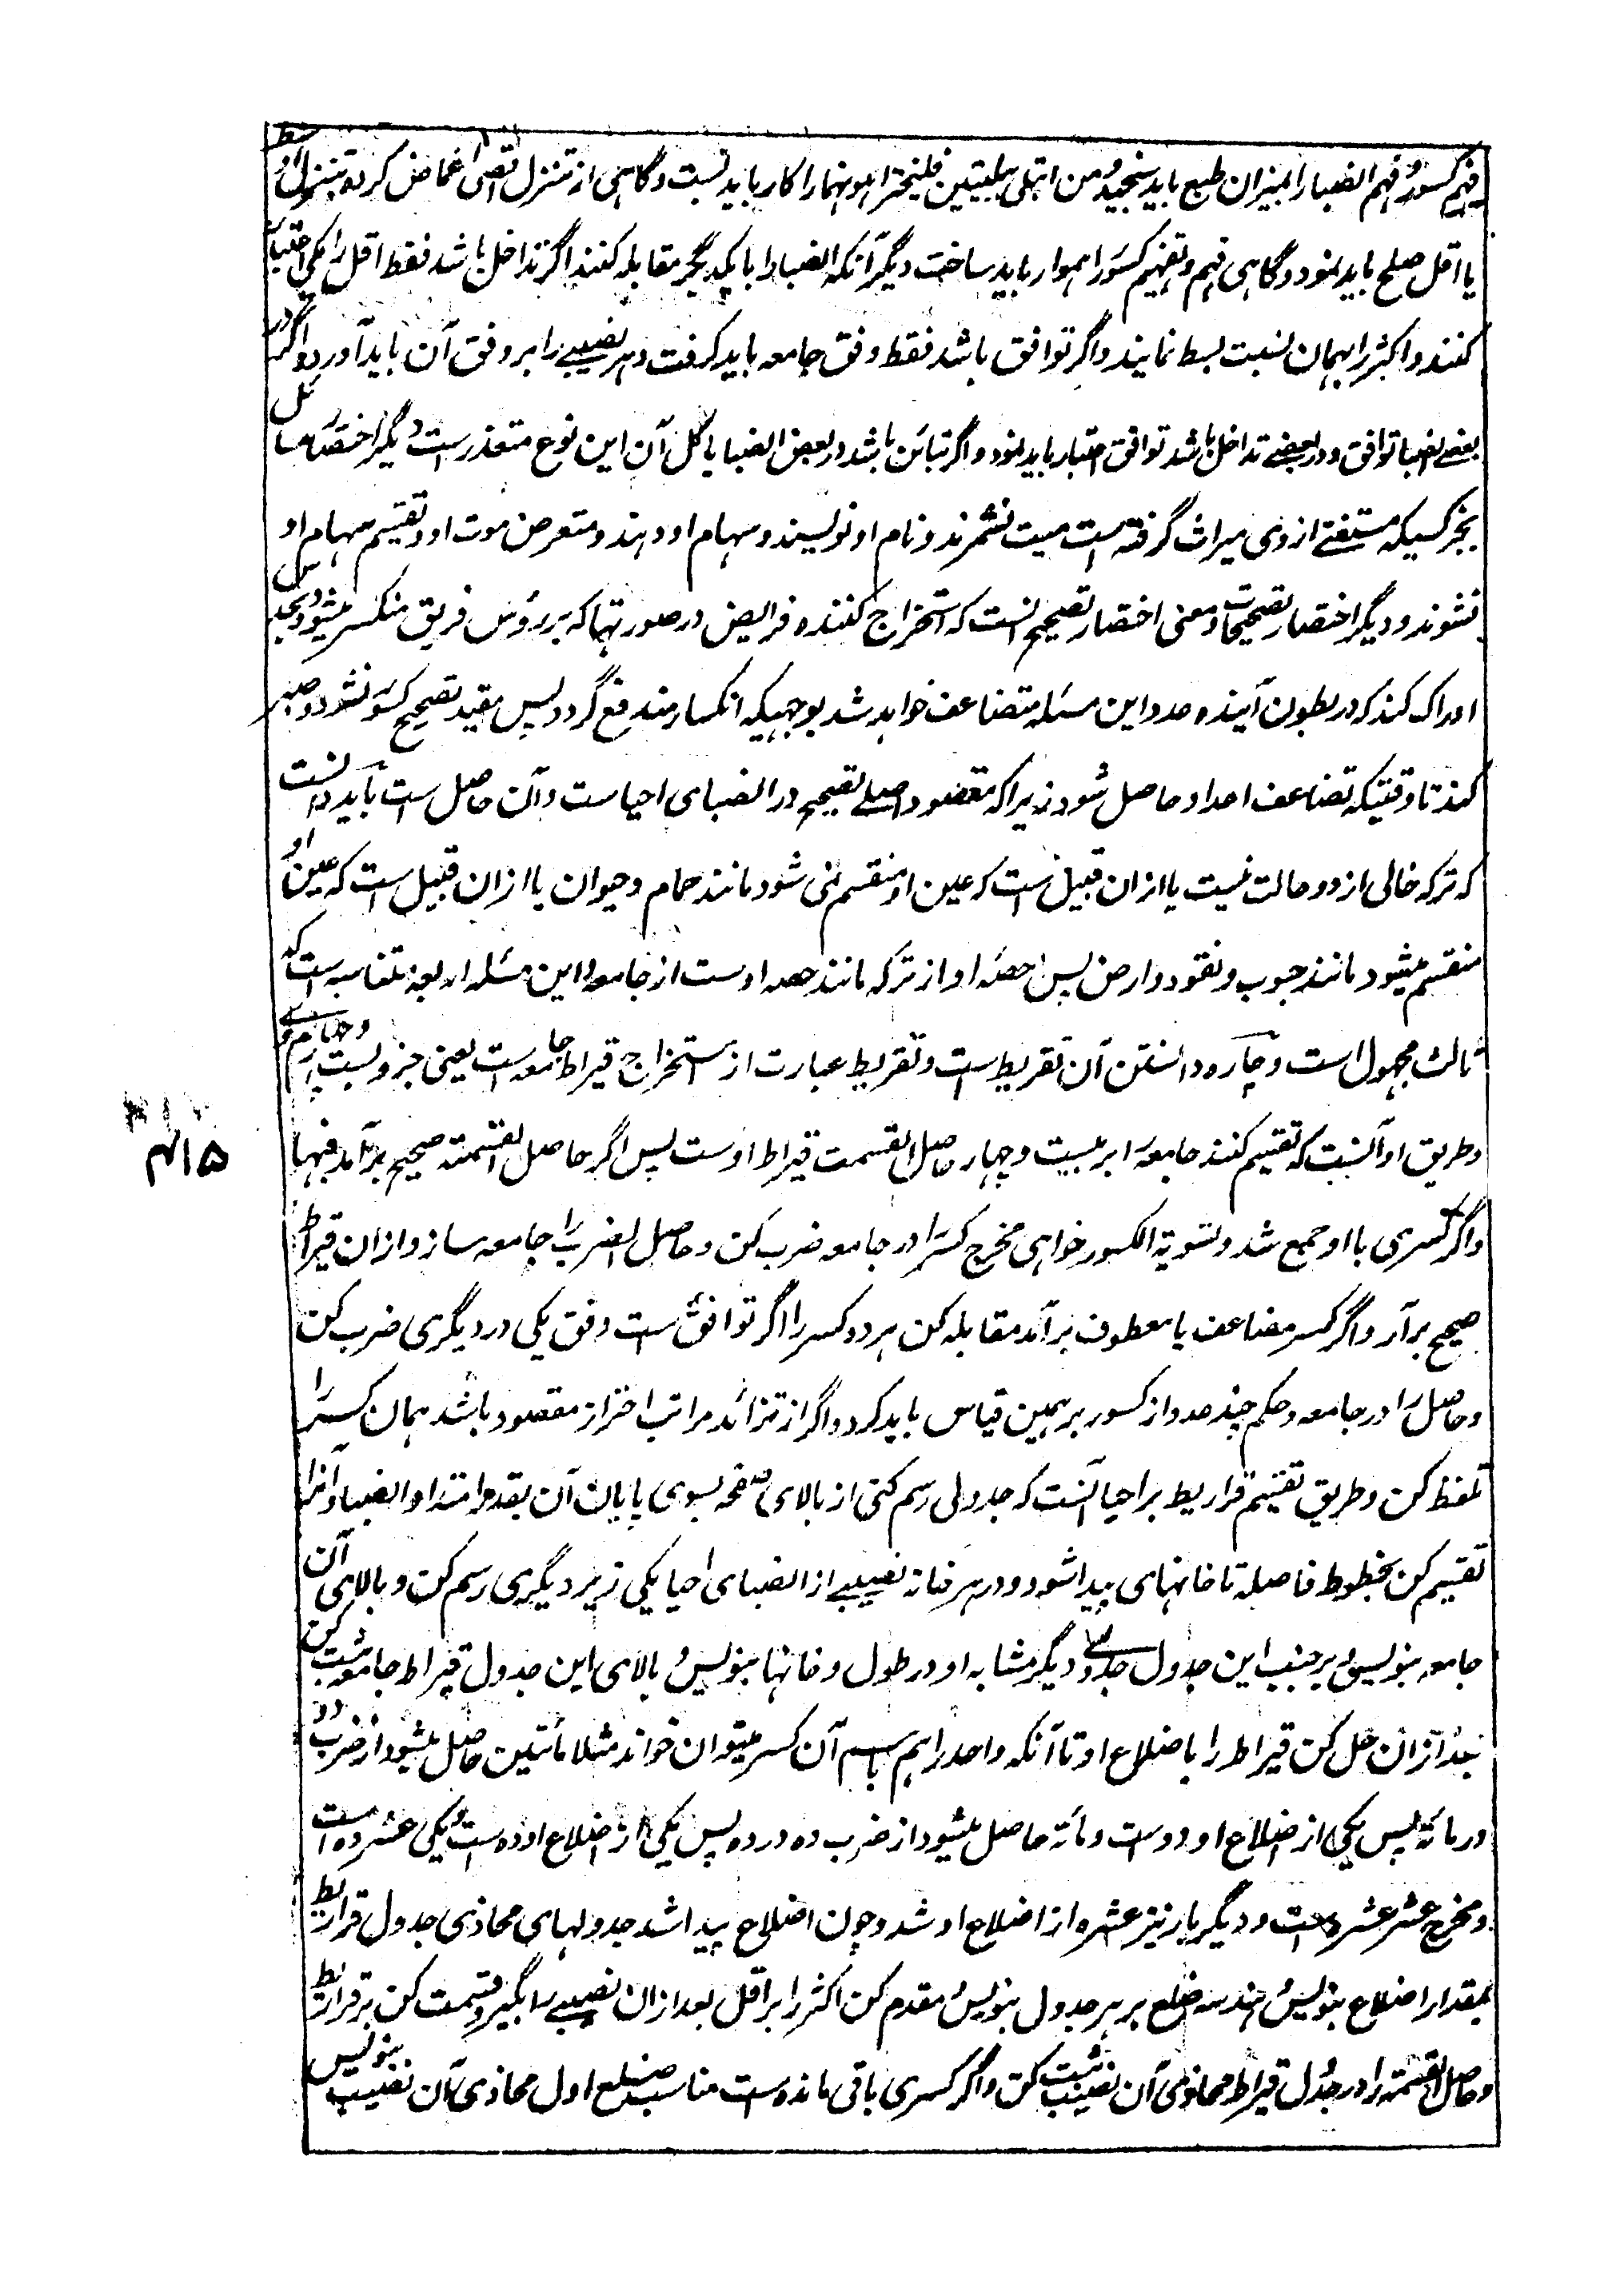 فهم کسور و فهم انصبا را بمیزان طبع باید سنجید و من ابتلی ببلیتین فلیختر اهونهما را کار باید بست و گاهی از تنزل اقصی اغماض کرده بتنزل اوسط
یا اقل صلح باید نمود و گاهی فهم و تفهیم کسور را هموار باید ساخت دیگر آنکه انصبا را با یکدیگر مقابله کنند اگر تداخل باشد فقط اقل را یکی اعتبار
کنند و اکثر را بهمان نسبت بسط نمایند و اگر توافق باشد فقط وفق جامعه باید گرفت و هر نصیبی را بر وفق آن باید آورد و اگر در
بعضی انصبا توافق و در بعضی تداخل باشد توافق اعتبار باید نمود و اگر تباین باشد در بعض انصبا یا کل آن این نوع متعذر است و دیگر اختصار مسائل
بجز کسیکه مستفتی از وی میراث گرفته است میت نشمرند و نام او نویسند و سهام او دهند و متعرض موت او و تقسیم سهام او
نشوند و دیگر اختصار تصحیحات و معنی اختصار تصحیح آنست که استخراج کننده فرایض در صورتها که بر رؤس فریق منکسر میشود و بحدس
ادراک کند که در بطون آینده عدد این مسئله متضاعف خواهد شد بوجهیکه انکسار مندفع گردد پس مقید تصحیح کسور نشود و صبر
کند تا وقتیکه تضاعف اعداد حاصل شود زیرا که مقصود اصلی تصحیح در انصبای احیاست و آن حاصل است باید دانست
که ترکه خالی از دو حالت نیست یا ازان قبیل است که عین او منقسم نمی شود مانند حمام و حیوان یا ازان قبیل است که عین او
منقسم میشود مانند حبوب و نقود و ارض پس حصه او از ترکه مانند حصه اوست از جامعه و این مسئله اربعه متناسبه است که
ثالث مجهول است و چاره دانستن آن تقریط است و تقریط عبارت از استخراج قیراط جامعه است یعنی جزو بست و چهارم وی
و طریق او آنست که تقسیم کنند جامعه را بر بیست و چهار حاصل القسمت قیراط اوست پس اگر حاصل القسمته صحیح برآمد فبها
و اگر کسری با او جمع شد و تسویة الکسور خواهی مخرج کسر را در جامعه ضرب کن و حاصل الضرب را جامعه ساز و ازان قیراط
صحیح برآر و اگر کسر مضاعف یا معطوف برآمد مقابله کن هر دو کسر را اگر توافق است وفق یکی در دیگری ضرب کن
و حاصل را در جامعه و حکم چند عدد از کسور بر همین قیاس باید کرد و اگر از تزائد مراتب احتراز مقصود باشد همان کسر را
تلفظ کن و طریق تقسیم قراریط بر احیا آنست که جدولی رسم کنی از بالای صفحه بسوی پایان آن بقدر امتداد انصبا و آنرا
تقسیم کن بخطوط فاصله تا خانهای پیدا شود و در هر خانه نصیبی از انصبای احیا یکی زیر دیگری رسم کن و بالای آن
جامعه بنویس و بر جنب این جدول جدولی دیگر مشابه او در طول و خانها بنویس و بالای این جدول قیراط جامعه ثبت کن
بعد ازان حل کن قیراط را باضلاع او تا آنکه واحد را هم باسم آن کسر میتوان خواند مثلا مائتین حاصل میشود از ضرب دو
در مائة پس یکی از اضلاع او دو است و مائة حاصل میشود از ضرب ده در ده پس یکی از اضلاع او ده است و یکی عشر ده است
و مخرج عشر عشره است و دیگر بار نیز عشره از اضلاع او شد و چون اضلاع پیدا شد جدولهای محاذی جدول قراریط
بمقدار اضلاع بنویس و هندسه ضلع بر هر جدول بنویس و مقدم کن اکثر را بر اقل بعد ازان نصیبی را بگیر و قسمت کن بر قراریط
و حاصل القسمته را در جدول قیراط محاذی آن نصیب ثبت کن و اگر کسری باقی مانده است مناسب ضلع اول محاذی آن نصیب بنویس
۴۱۵